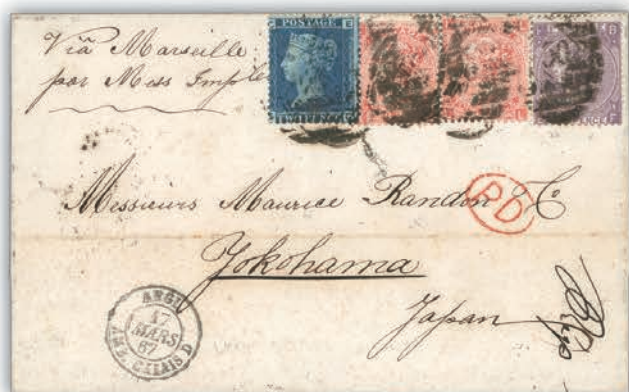 Viâ Marseille
par Mess Imple
POSTAGE
PD
Messieurs Maurice Randon & Co
Yokohama
Japan
ANGL.
17
MARS
67
AMB. CALAIS D